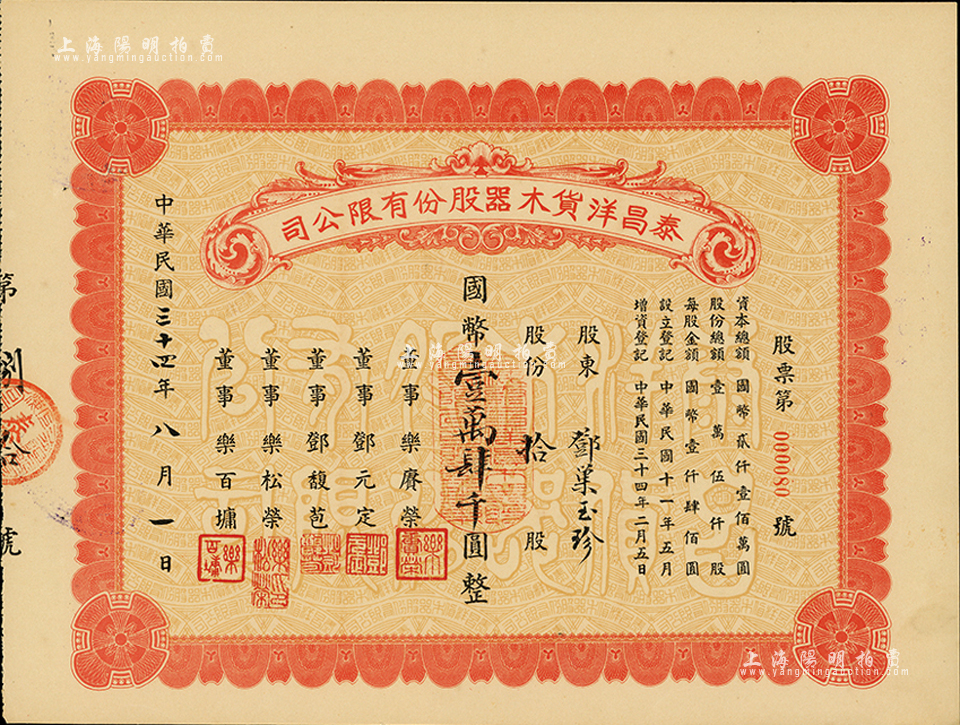 上海陽明拍賣
www.yangmingauction.com
泰昌洋貨木器股份有限公司
股票第 0000080 號
資本總額 國幣貳仟壹佰萬圓
股份總額 壹萬伍仟股
每股金額 國幣壹仟肆佰圓
設立登記 中華民國十一年五月
增資登記 中華民國三十四年二月五日
股東 鄧葉玉珍
股份 拾 股
國幣壹萬肆千圓整
董事 樂賡榮
董事 鄧元定
董事 鄧馥苞
董事 樂松榮
董事 樂百墉
中華民國三十四年八月一日
第 捌拾 號
上海陽明拍賣
www.yangmingauction.com
上海陽明拍賣
www.yangmingauction.com